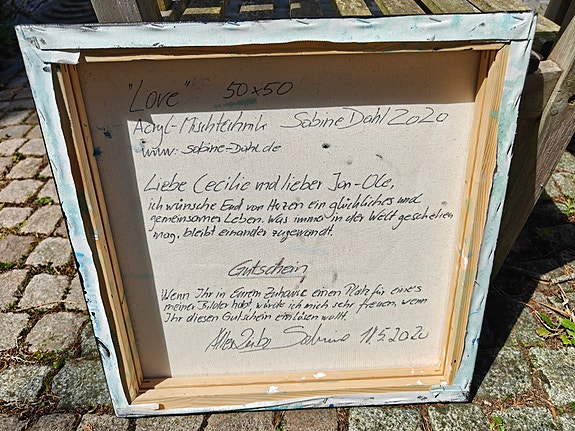 "Love" 50x50
Acryl-Mischtechnik Sabine Dahl 2020
www.sabine-Dahl.de
Liebe Cecilie und lieber Jan-Ole,
ich wünsche Euch von Herzen ein glückliches und
gemeinsames Leben. Was immer in der Welt geschehen
mag, bleibt einander zugewandt.
Gutschein
Wenn Ihr in Eurem Zuhause einen Platz für eines
meiner Bilder habt würde ich mich sehr freuen, wenn
Ihr diesen Gutschein einlösen wollt.
Alles Liebe Sabine 11.5.2020